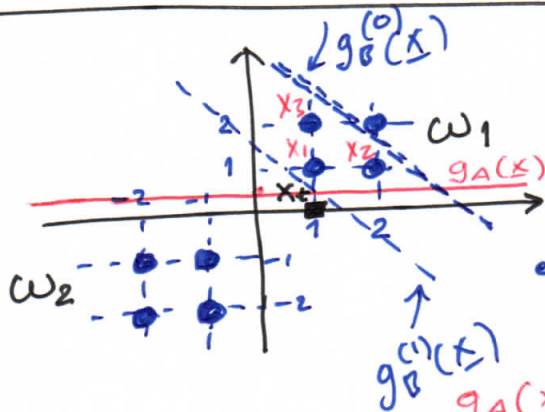 g_B^(0)(x)
x3
2
ω1
x1
x2
1
g_A(x)
-2
-1
xt
1
2
-1
ω2
-2
g_B^(1)(x)
g_A(x